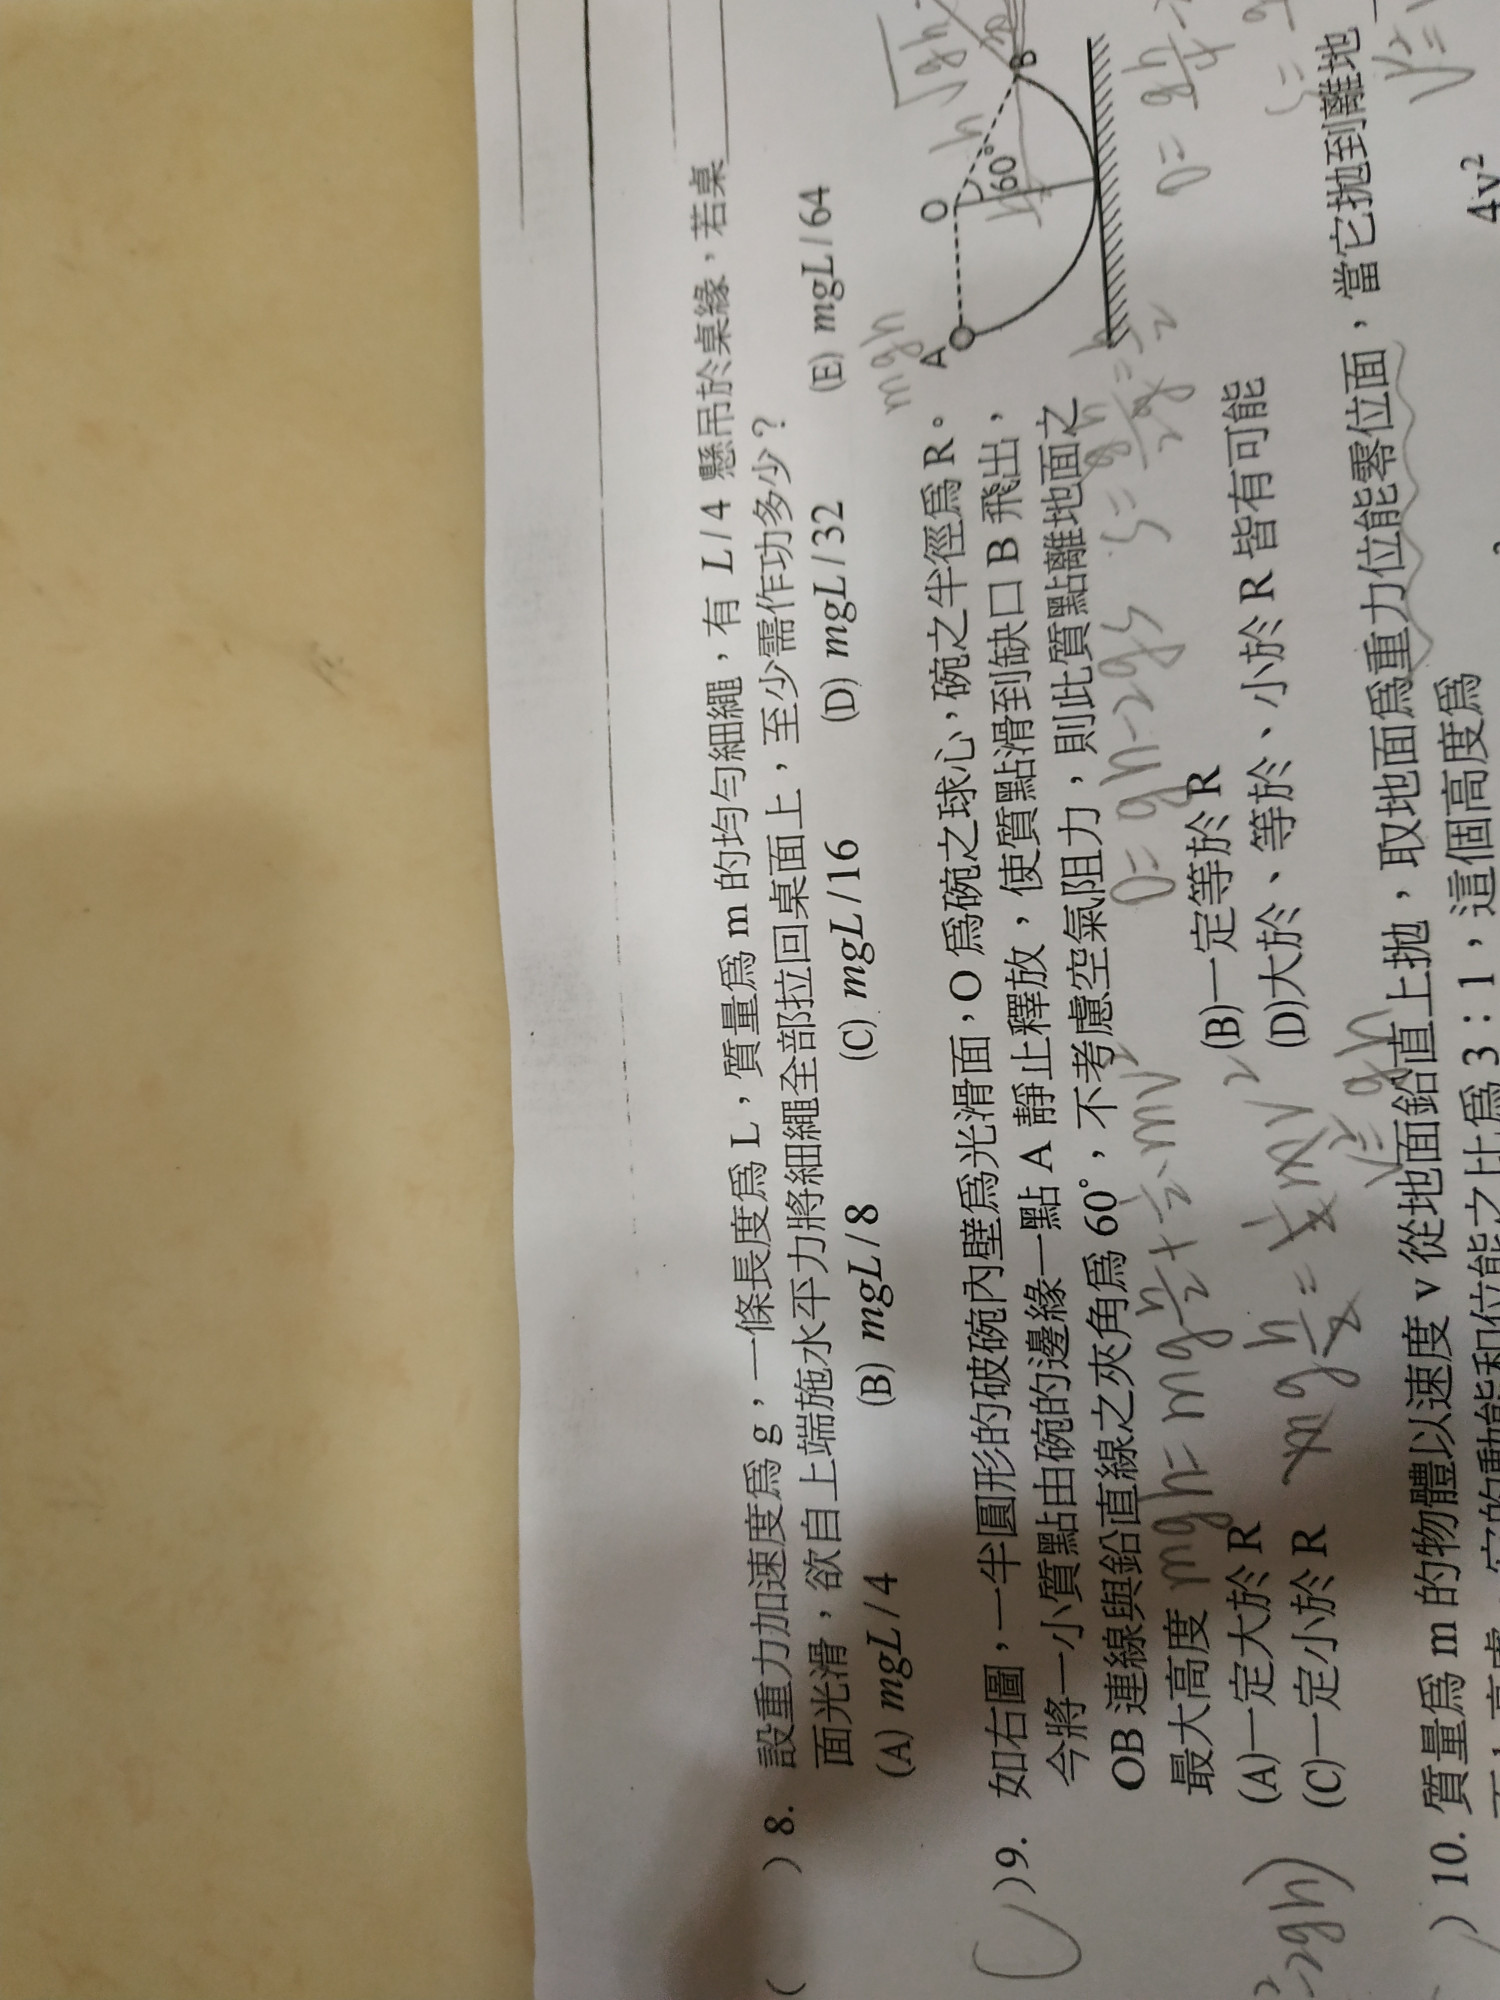 ( ) 8. 設重力加速度為 g，一條長度為 L，質量為 m 的均勻細繩，有 L/4 懸吊於桌緣，若桌
面光滑，欲自上端施水平力將細繩全部拉回桌面上，至少需作功多少？
(A) mgL/4 (B) mgL/8 (C) mgL/16 (D) mgL/32 (E) mgL/64
)9. 如右圖，一半圓形的破碗內壁為光滑面，O 為碗之球心，碗之半徑為 R。
今將一小質點由碗的邊緣一點 A 靜止釋放，使質點滑到缺口 B 飛出，
OB 連線與鉛直線之夾角為 60°，不考慮空氣阻力，則此質點離地面之
最大高度
(A)一定大於 R (B)一定等於 R
(C)一定小於 R (D)大於、等於、小於 R 皆有可能
A
O
60°
B
mgh
mgh = mg h/2 + 1/2 mv²
mg h/2 = 1/2 mv²
v = √gh
0 = gh - 2gs
) 10. 質量為 m 的物體以速度 v 從地面鉛直上拋，取地面為重力位能零位面，當它拋到離地
的動能和位能之比為 3：1，這個高度為
4v²